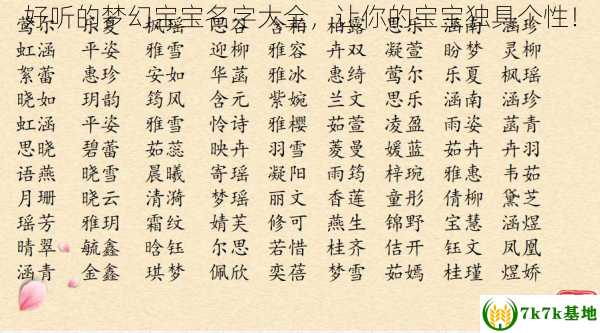 好听的梦幻宝宝名字大全，让你的宝宝独具个性！
莺尔 乐夏 枫瑶 思容 含柏 柏露 思乐 涵南 涵珍
虹涵 平姿 雅雪 迎柳 雅容 卉双 凝萱 盼梦 灵柳
絮蕾 惠珍 安如 华菡 雅冰 惠绮 莺尔 乐夏 枫瑶
晓如 玥韵 筠风 含元 紫婉 兰文 思乐 涵南 涵珍
虹涵 平姿 雅雪 怜诗 雅樱 茹萱 凌盈 雨姿 菡青
思晓 碧蕾 茹蕊 映卉 羽雪 菱曼 媛蓝 茹卉 卉羽
语燕 晓雪 晨曦 寄瑶 凝阳 雨筠 梓琬 雅惠 韦茹
月珊 晓云 清漪 梦瑶 丽文 香莲 童彤 倩柳 黛芝
瑶芳 雅玥 霜纹 婧芙 修可 燕生 锦野 宝慧 涵煜
晴翠 毓鑫 晗钰 尔思 若惜 桂齐 佶开 钰文 凤凰
涵青 金鑫 琪梦 佩欣 奕蓓 梦雪 茹嫣 桂瑾 煜娇
7k7k基地